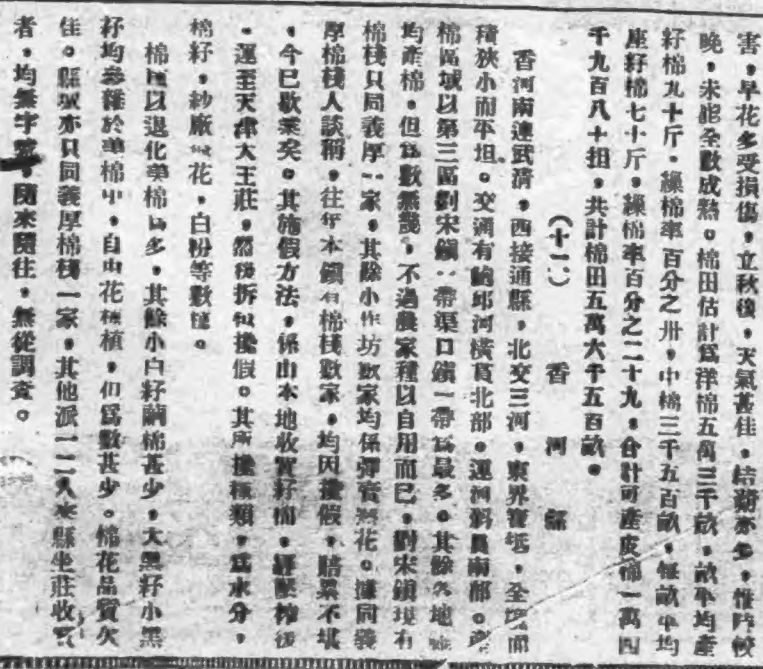 害，早花多受損傷，立秋後，天氣甚佳，結蒴亦多，惟時較
晚，未能全數成熟。棉田估計爲洋棉五萬三千畝，畝平均產
籽棉九十斤，繰棉率百分之卅，中棉三千五百畝，每畝平均
產籽棉七十斤，繰棉率百分之二十九，合計可產皮棉一萬四
千九百八十担，共計棉田五萬六千五百畝。
（十二）　香　河　縣
香河南連武清，西接通縣，北交三河，東界寶坻，全境面
積狹小而平坦。交通有鮑邱河橫貫北部。運河斜貫南部。產
棉區域以第三區劉宋鎮一帶渠口鎮一帶爲最多。其餘各地雖
均產棉，但爲數無幾，不過農家種以自用而已，劉宋鎮現有
棉棧只同義厚一家，其餘小作坊數家均係彈賣絮花。據同義
厚棉棧人談稱，往年本鎮有棉棧數家，均因攙假，賠累不堪
，今已歇業矣。其施假方法，係由本地收買籽棉，經壓榨後
，運至天津大王莊，然後拆包攙假。其所攙種類，爲水分，
棉籽，紗廠花，白粉等數種。
棉種以退化美棉爲多，其餘小白籽繭棉甚少，大黑籽小黑
籽均參雜於美棉中，自由花種植，但爲數甚少。棉花品質欠
佳。縣城亦只同義厚棉棧一家，其他派一二人來縣坐莊收買
者，均無字號，隨來隨往，無從調查。